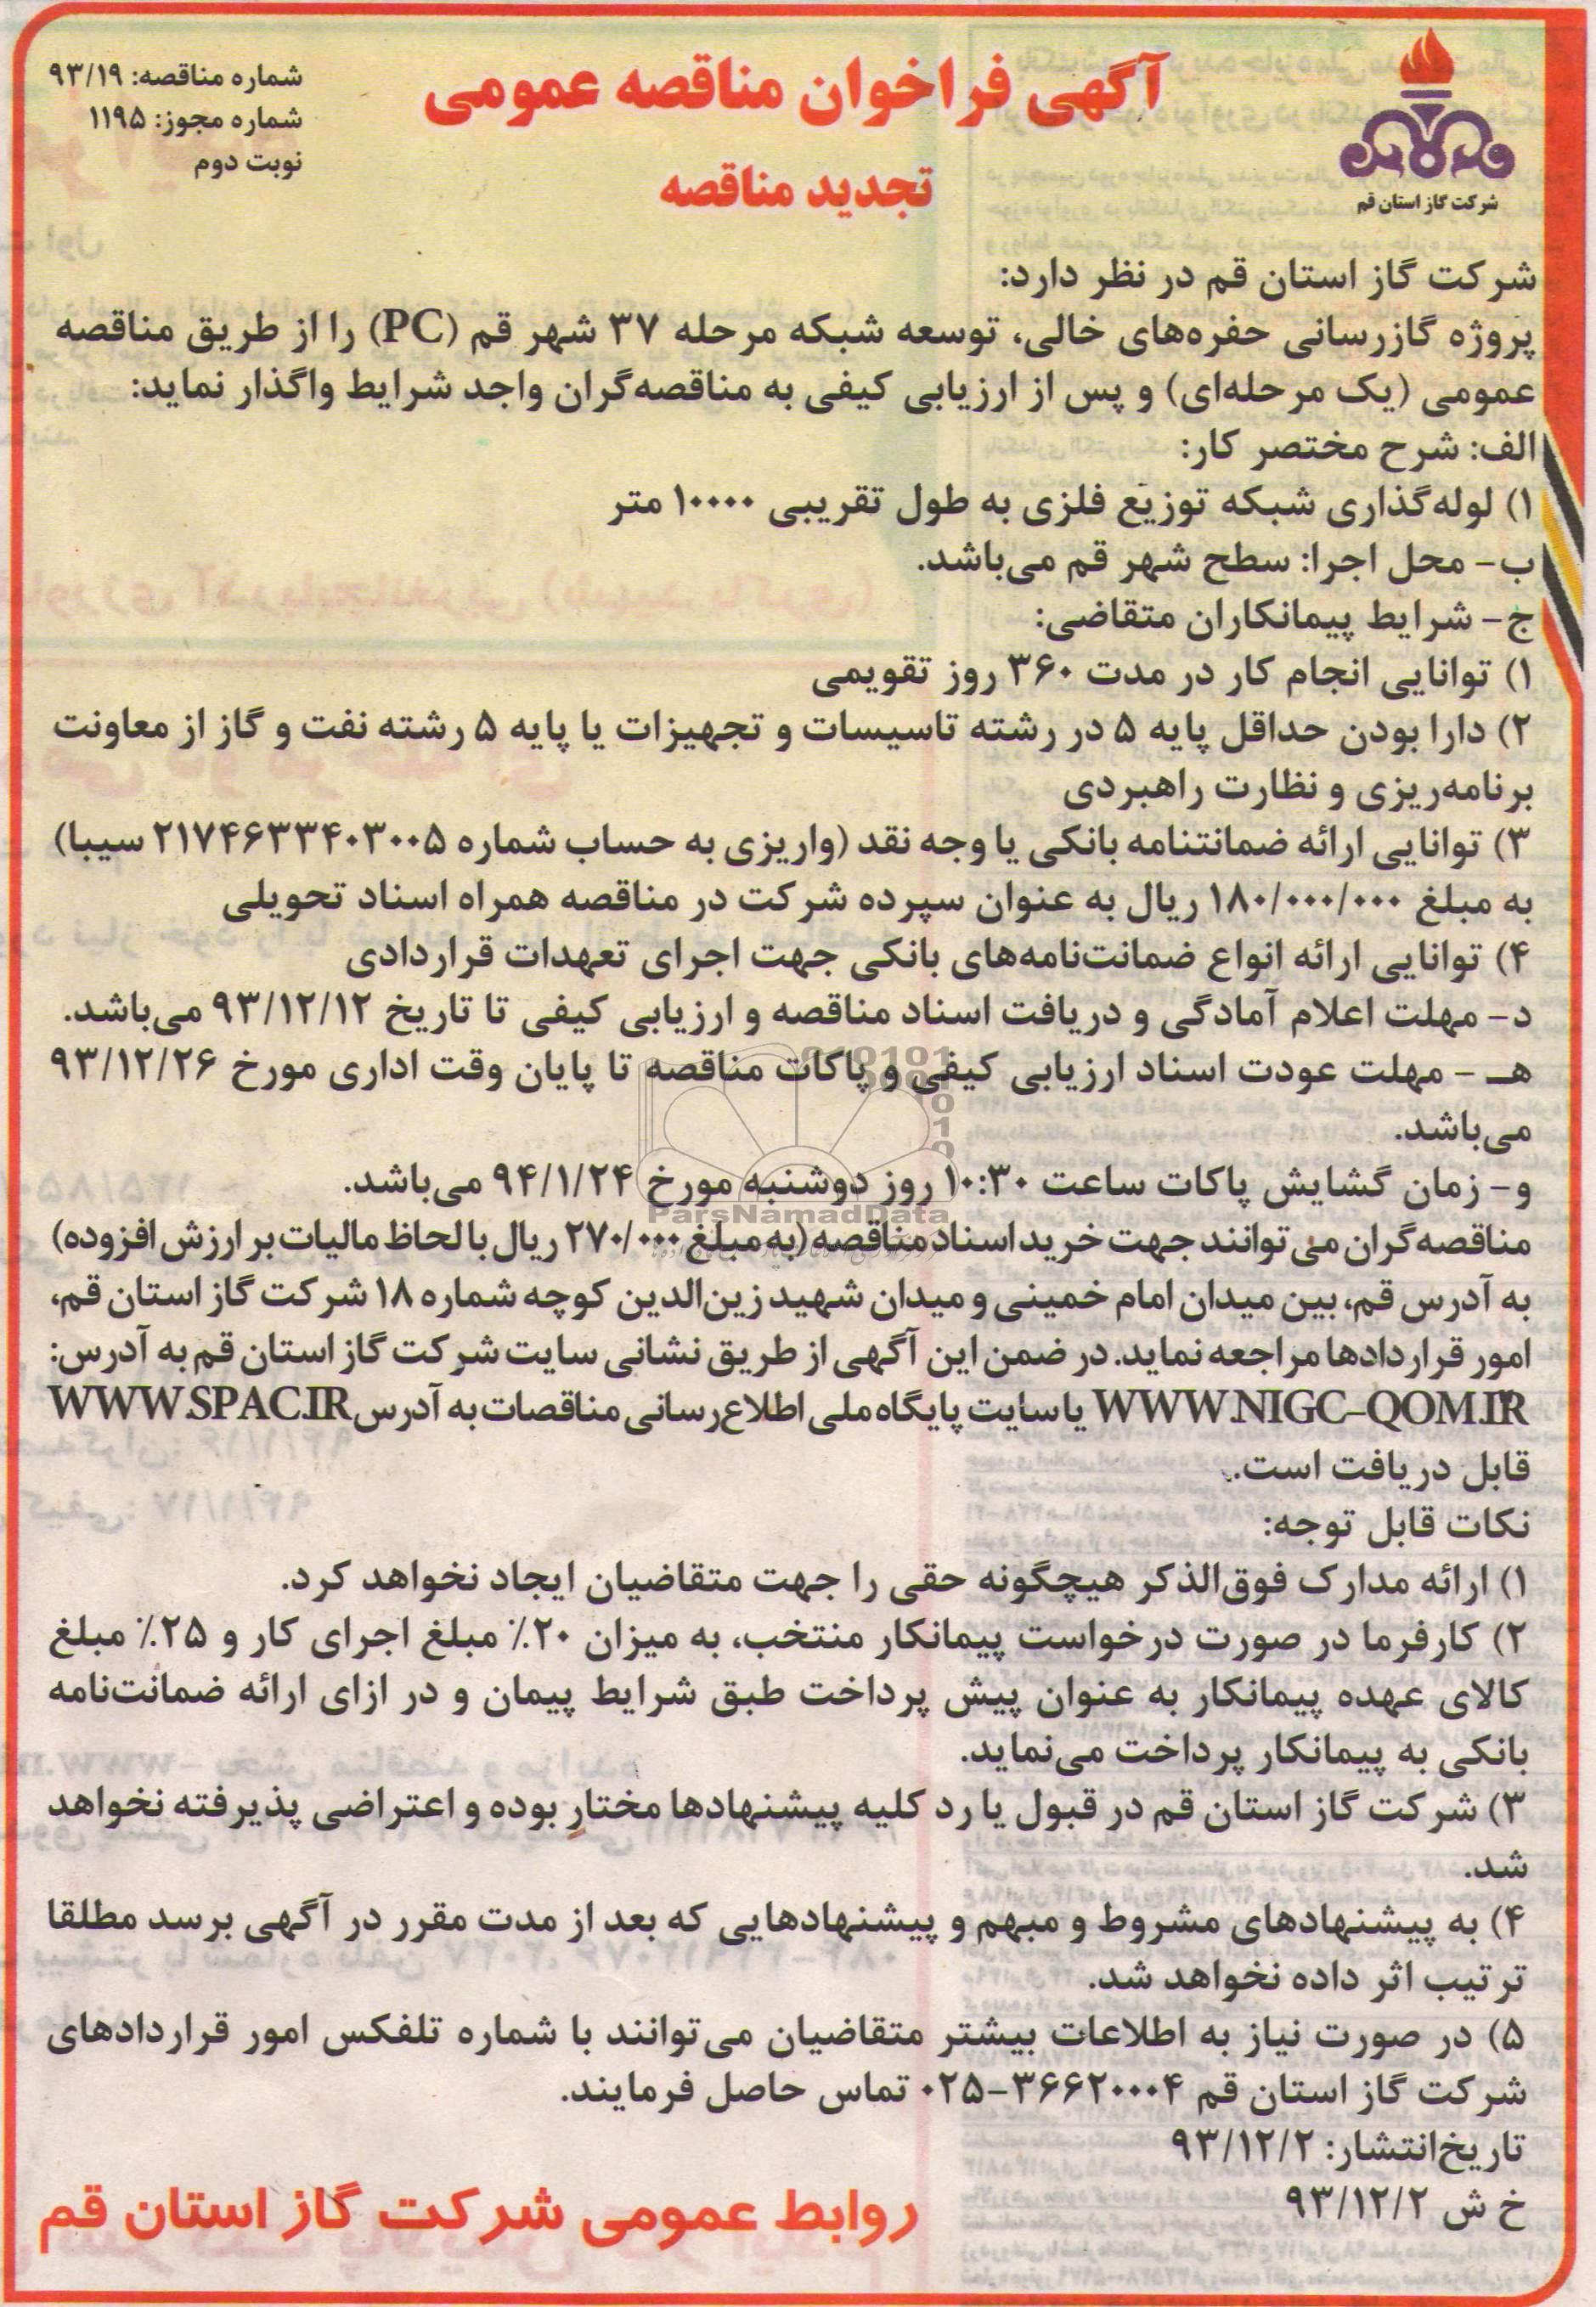 آگهی فراخوان مناقصه عمومی
تجدید مناقصه
شماره مناقصه: ۹۳/۱۹
شماره مجوز: ۱۱۹۵
نوبت دوم
شرکت گاز استان قم
شرکت گاز استان قم در نظر دارد:
پروژه گازرسانی حفره‌های خالی، توسعه شبکه مرحله ۳۷ شهر قم (PC) را از طریق مناقصه
عمومی (یک مرحله‌ای) و پس از ارزیابی کیفی به مناقصه‌گران واجد شرایط واگذار نماید:
الف: شرح مختصر کار:
۱) لوله‌گذاری شبکه توزیع فلزی به طول تقریبی ۱۰۰۰۰ متر
ب- محل اجرا: سطح شهر قم می‌باشد.
ج- شرایط پیمانکاران متقاضی:
۱) توانایی انجام کار در مدت ۳۶۰ روز تقویمی
۲) دارا بودن حداقل پایه ۵ در رشته تاسیسات و تجهیزات یا پایه ۵ رشته نفت و گاز از معاونت
برنامه‌ریزی و نظارت راهبردی
۳) توانایی ارائه ضمانتنامه بانکی یا وجه نقد (واریزی به حساب شماره ۲۱۷۴۶۳۳۴۰۳۰۰۵ سیبا)
به مبلغ ۱۸۰/۰۰۰/۰۰۰ ریال به عنوان سپرده شرکت در مناقصه همراه اسناد تحویلی
۴) توانایی ارائه انواع ضمانت‌نامه‌های بانکی جهت اجرای تعهدات قراردادی
د- مهلت اعلام آمادگی و دریافت اسناد مناقصه و ارزیابی کیفی تا تاریخ ۹۳/۱۲/۱۲ می‌باشد.
هـ - مهلت عودت اسناد ارزیابی کیفی و پاکات مناقصه تا پایان وقت اداری مورخ ۹۳/۱۲/۲۶
می‌باشد.
و- زمان گشایش پاکات ساعت ۱۰:۳۰ روز دوشنبه مورخ ۹۴/۱/۲۴ می‌باشد.
ParsNamadData
مناقصه‌گران می‌توانند جهت خرید اسناد مناقصه (به مبلغ ۲۷۰/۰۰۰ ریال با لحاظ مالیات بر ارزش افزوده)
به آدرس قم، بین میدان امام خمینی و میدان شهید زین‌الدین کوچه شماره ۱۸ شرکت گاز استان قم،
امور قراردادها مراجعه نماید. در ضمن این آگهی از طریق نشانی سایت شرکت گاز استان قم به آدرس:
WWW.NIGC-QOM.IR یا سایت پایگاه ملی اطلاع‌رسانی مناقصات به آدرس WWW.SPAC.IR
قابل دریافت است.
نکات قابل توجه:
۱) ارائه مدارک فوق‌الذکر هیچگونه حقی را جهت متقاضیان ایجاد نخواهد کرد.
۲) کارفرما در صورت درخواست پیمانکار منتخب، به میزان ۲۰٪ مبلغ اجرای کار و ۲۵٪ مبلغ
کالای عهده پیمانکار به عنوان پیش پرداخت طبق شرایط پیمان و در ازای ارائه ضمانت‌نامه
بانکی به پیمانکار پرداخت می‌نماید.
۳) شرکت گاز استان قم در قبول یا رد کلیه پیشنهادها مختار بوده و اعتراضی پذیرفته نخواهد
شد.
۴) به پیشنهادهای مشروط و مبهم و پیشنهادهایی که بعد از مدت مقرر در آگهی برسد مطلقا
ترتیب اثر داده نخواهد شد.
۵) در صورت نیاز به اطلاعات بیشتر متقاضیان می‌توانند با شماره تلفکس امور قراردادهای
شرکت گاز استان قم ۳۶۶۲۰۰۰۴-۰۲۵ تماس حاصل فرمایند.
تاریخ‌انتشار: ۹۳/۱۲/۲
خ ش ۹۳/۱۲/۲
روابط عمومی شرکت گاز استان قم